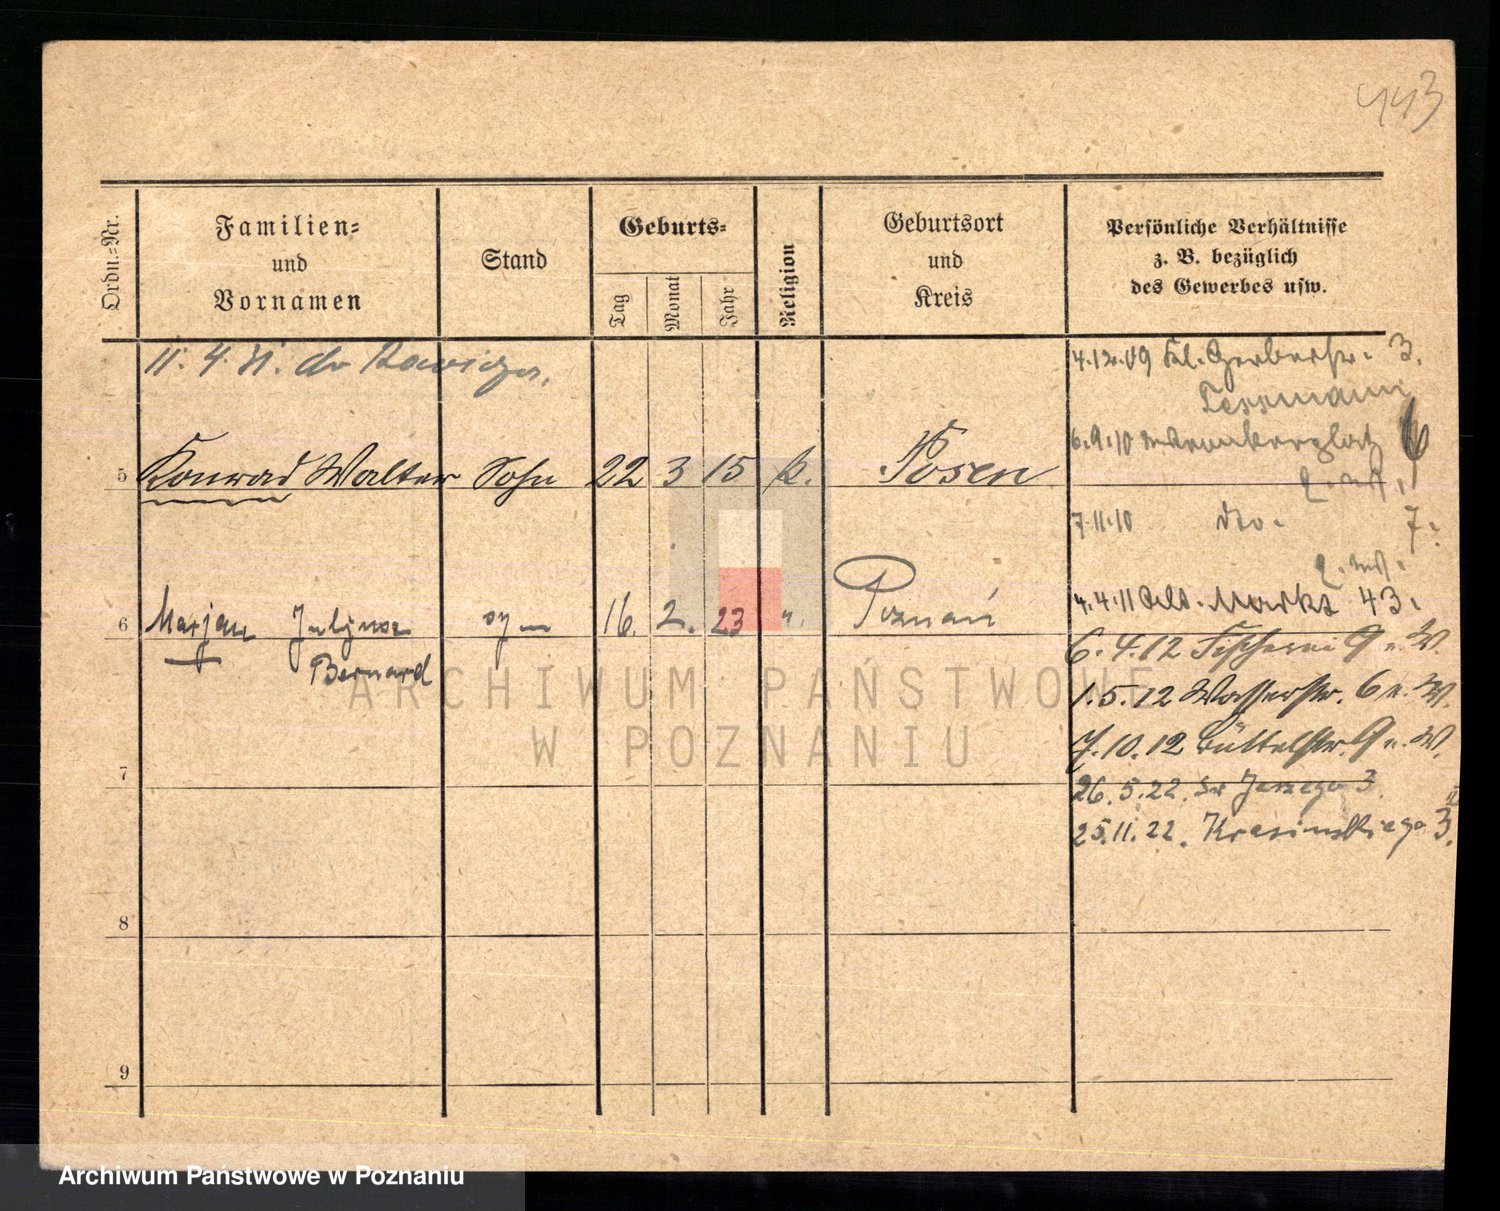 443
Ordn.-Nr.
Familien-
und
Vornamen
Stand
Geburts-
Tag
Monat
Jahr
Religion
Geburtsort
und
Kreis
Persönliche Verhältnisse
z. B. bezüglich
des Gewerbes usw.
11. 4. 31. do Rawicza.
4.12.09 Gerberstr. 3.
Tessmann
6.9.10 6
5 Konrad Walter Sohn 22 3 15 k. Posen
7.11.10 dto. 7.
4.4.11 Alt. Markt 43.
6 Marjan Juljusz syn 16. 2. 23 ". Poznań
Bernard
6.4.12 Fischerei 9 b. W.
1.5.12 Wasserstr. 6 b. W.
7.10.12 Büttelstr. 9 b. W.
7
26.5.22. Sw Jerzego 3.
25.11.22. Krasinskiego 3.
8
9
ARCHIWUM PAŃSTWOWE
W POZNANIU
Archiwum Państwowe w Poznaniu